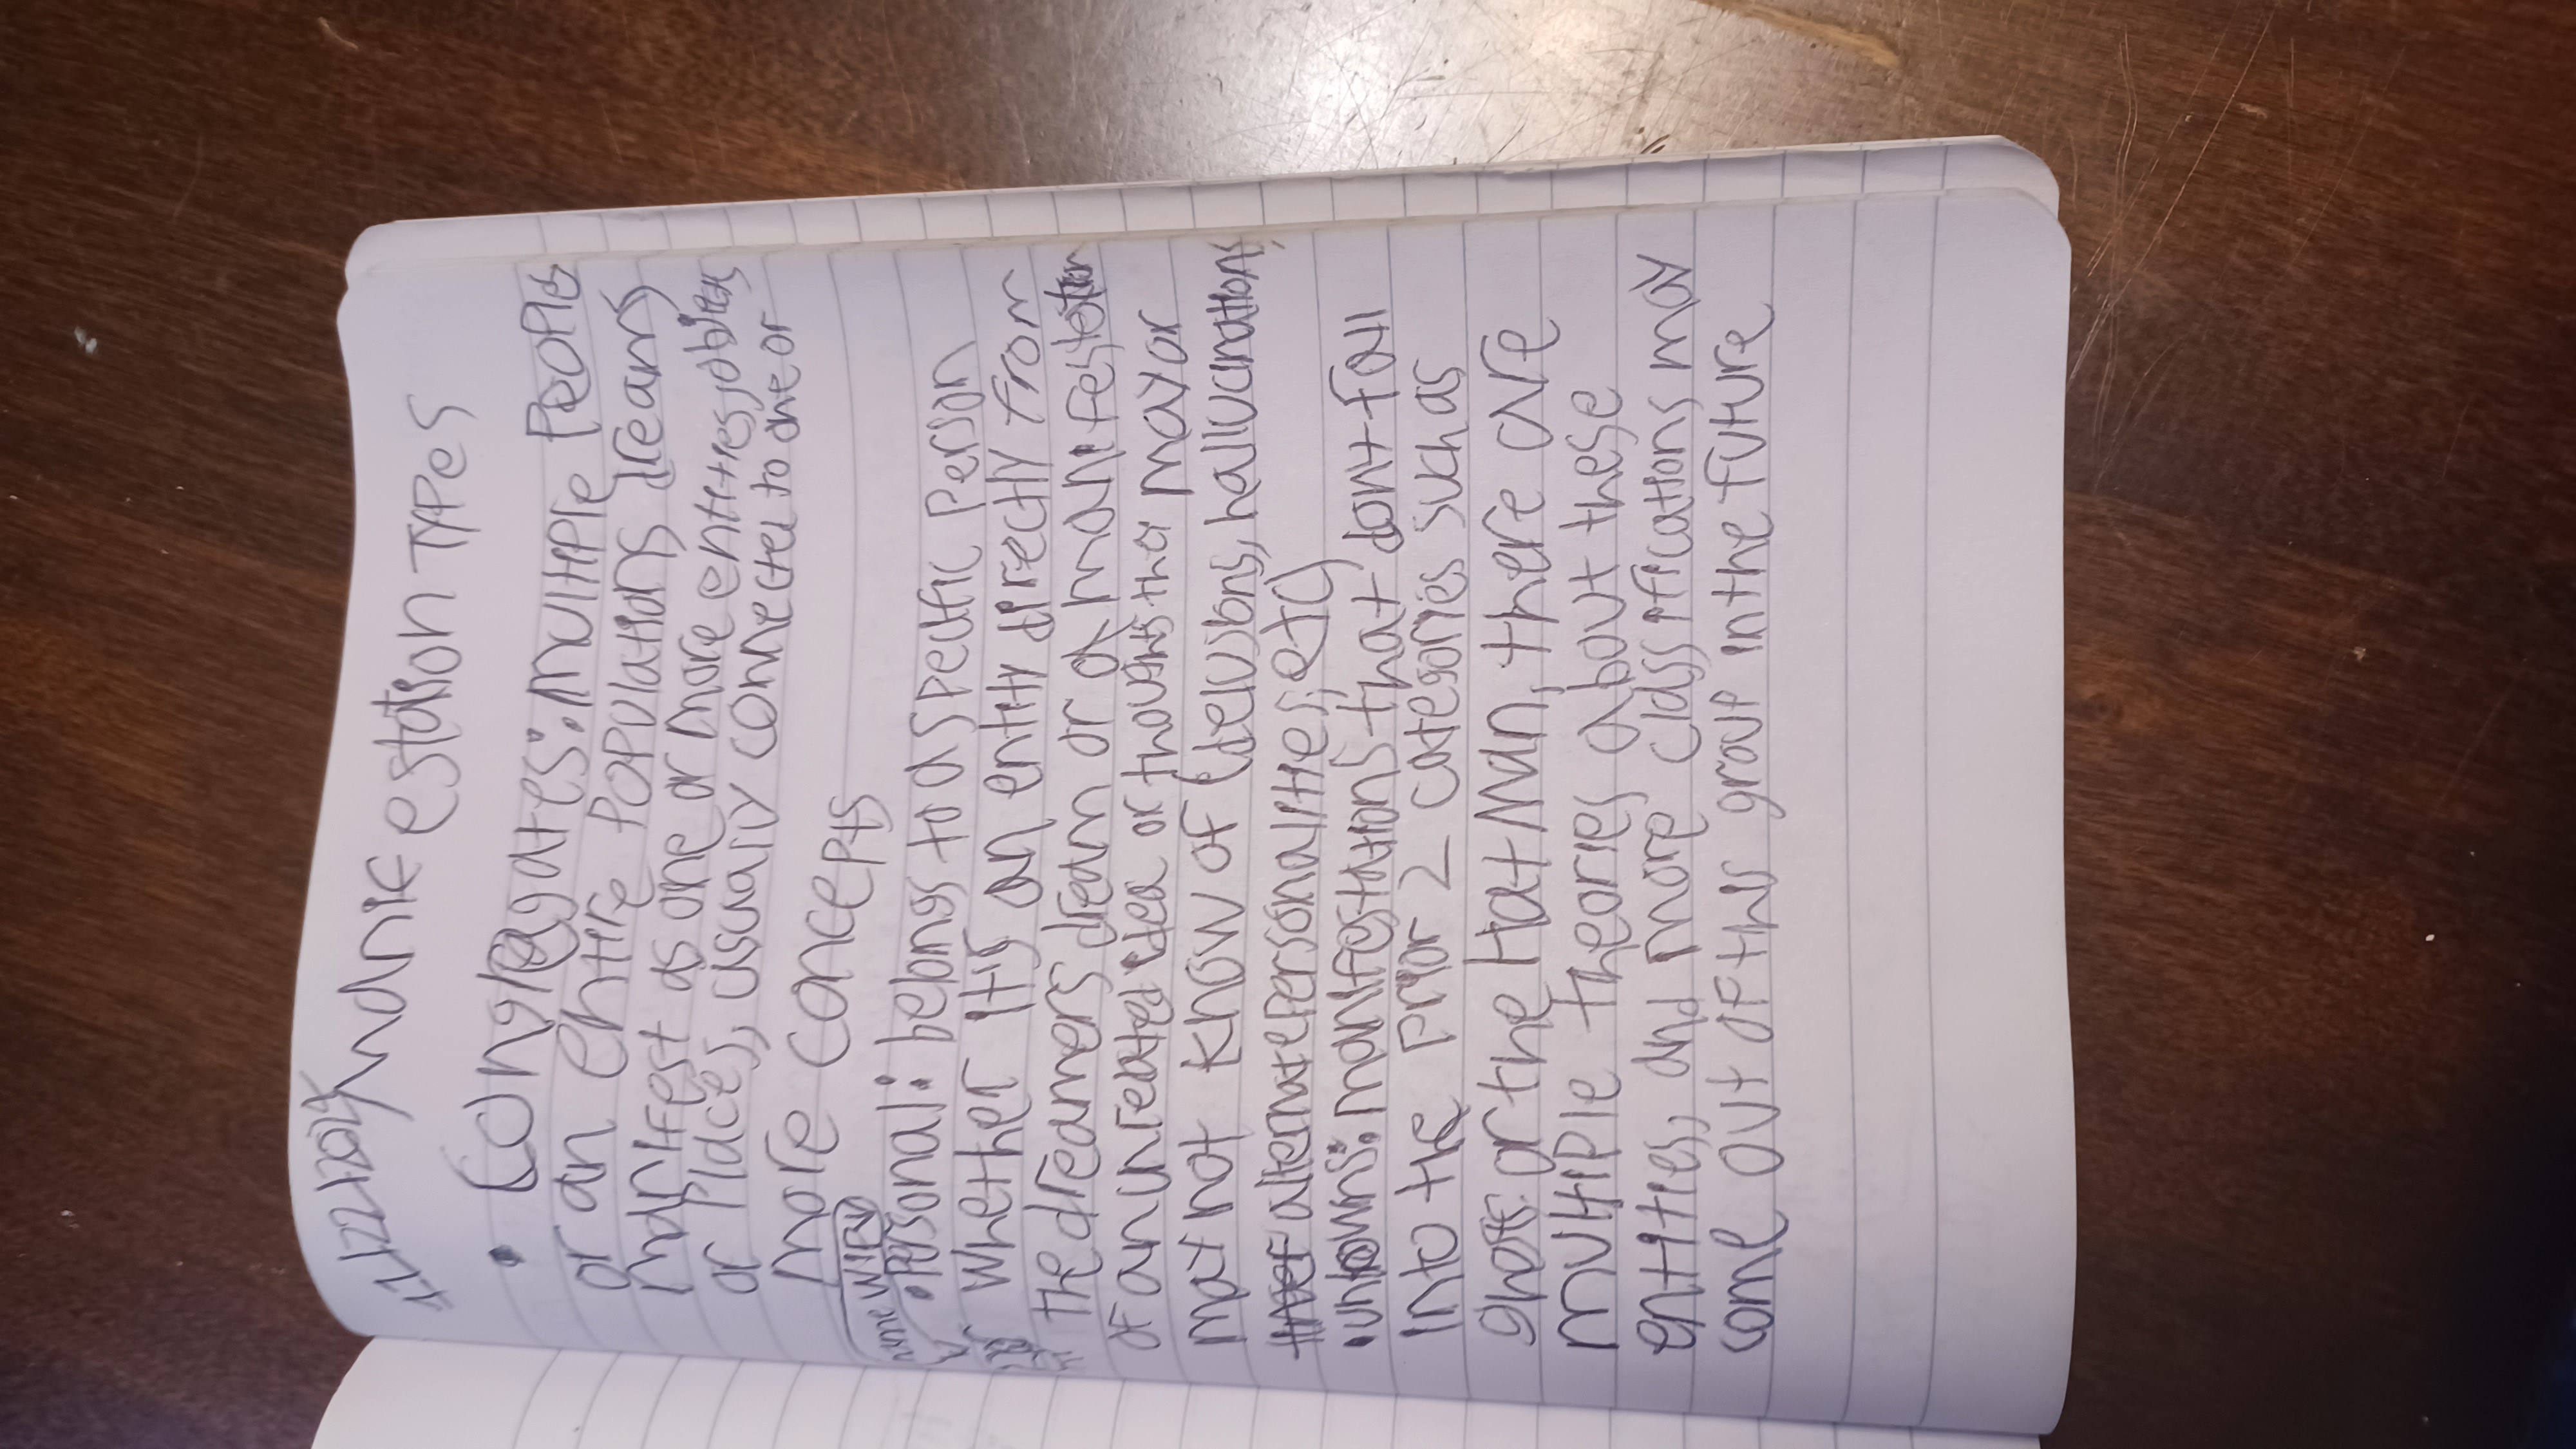 11/22/2024 Manifestation Types
• Congregates: multiple Peoples
or an entire Populations dreams
manifest as one or more entities, objects
or Places, usually connected to one or
more concepts
name WIP
• Personal: belongs to a specific Person
whether it's an entity directly from
the dreamers dream or a manifestation
of an unrelated idea or thoughts they may or
may not know of (delusions, hallucinations,
alternate Personalities, etc)
• unknowns: manifestations that dont fall
into the Prior 2 categories such as
ghosts or the Hat Man, there are
multiple theories about these
entities, and more classifications may
come out of this group in the future